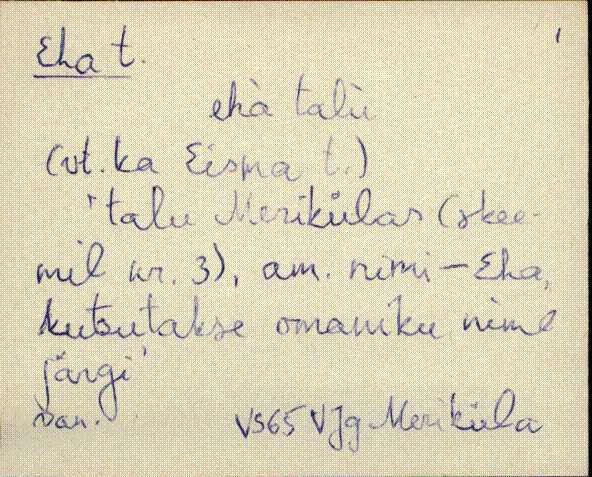 Eha t.
ehà talù
(vt. ka Eisma t.)
'talu Merikülas (skee-
mil nr. 3), am. nimi – Eha,
kutsutakse omaniku nime
järgi'
van. VS65 VJg Meriküla